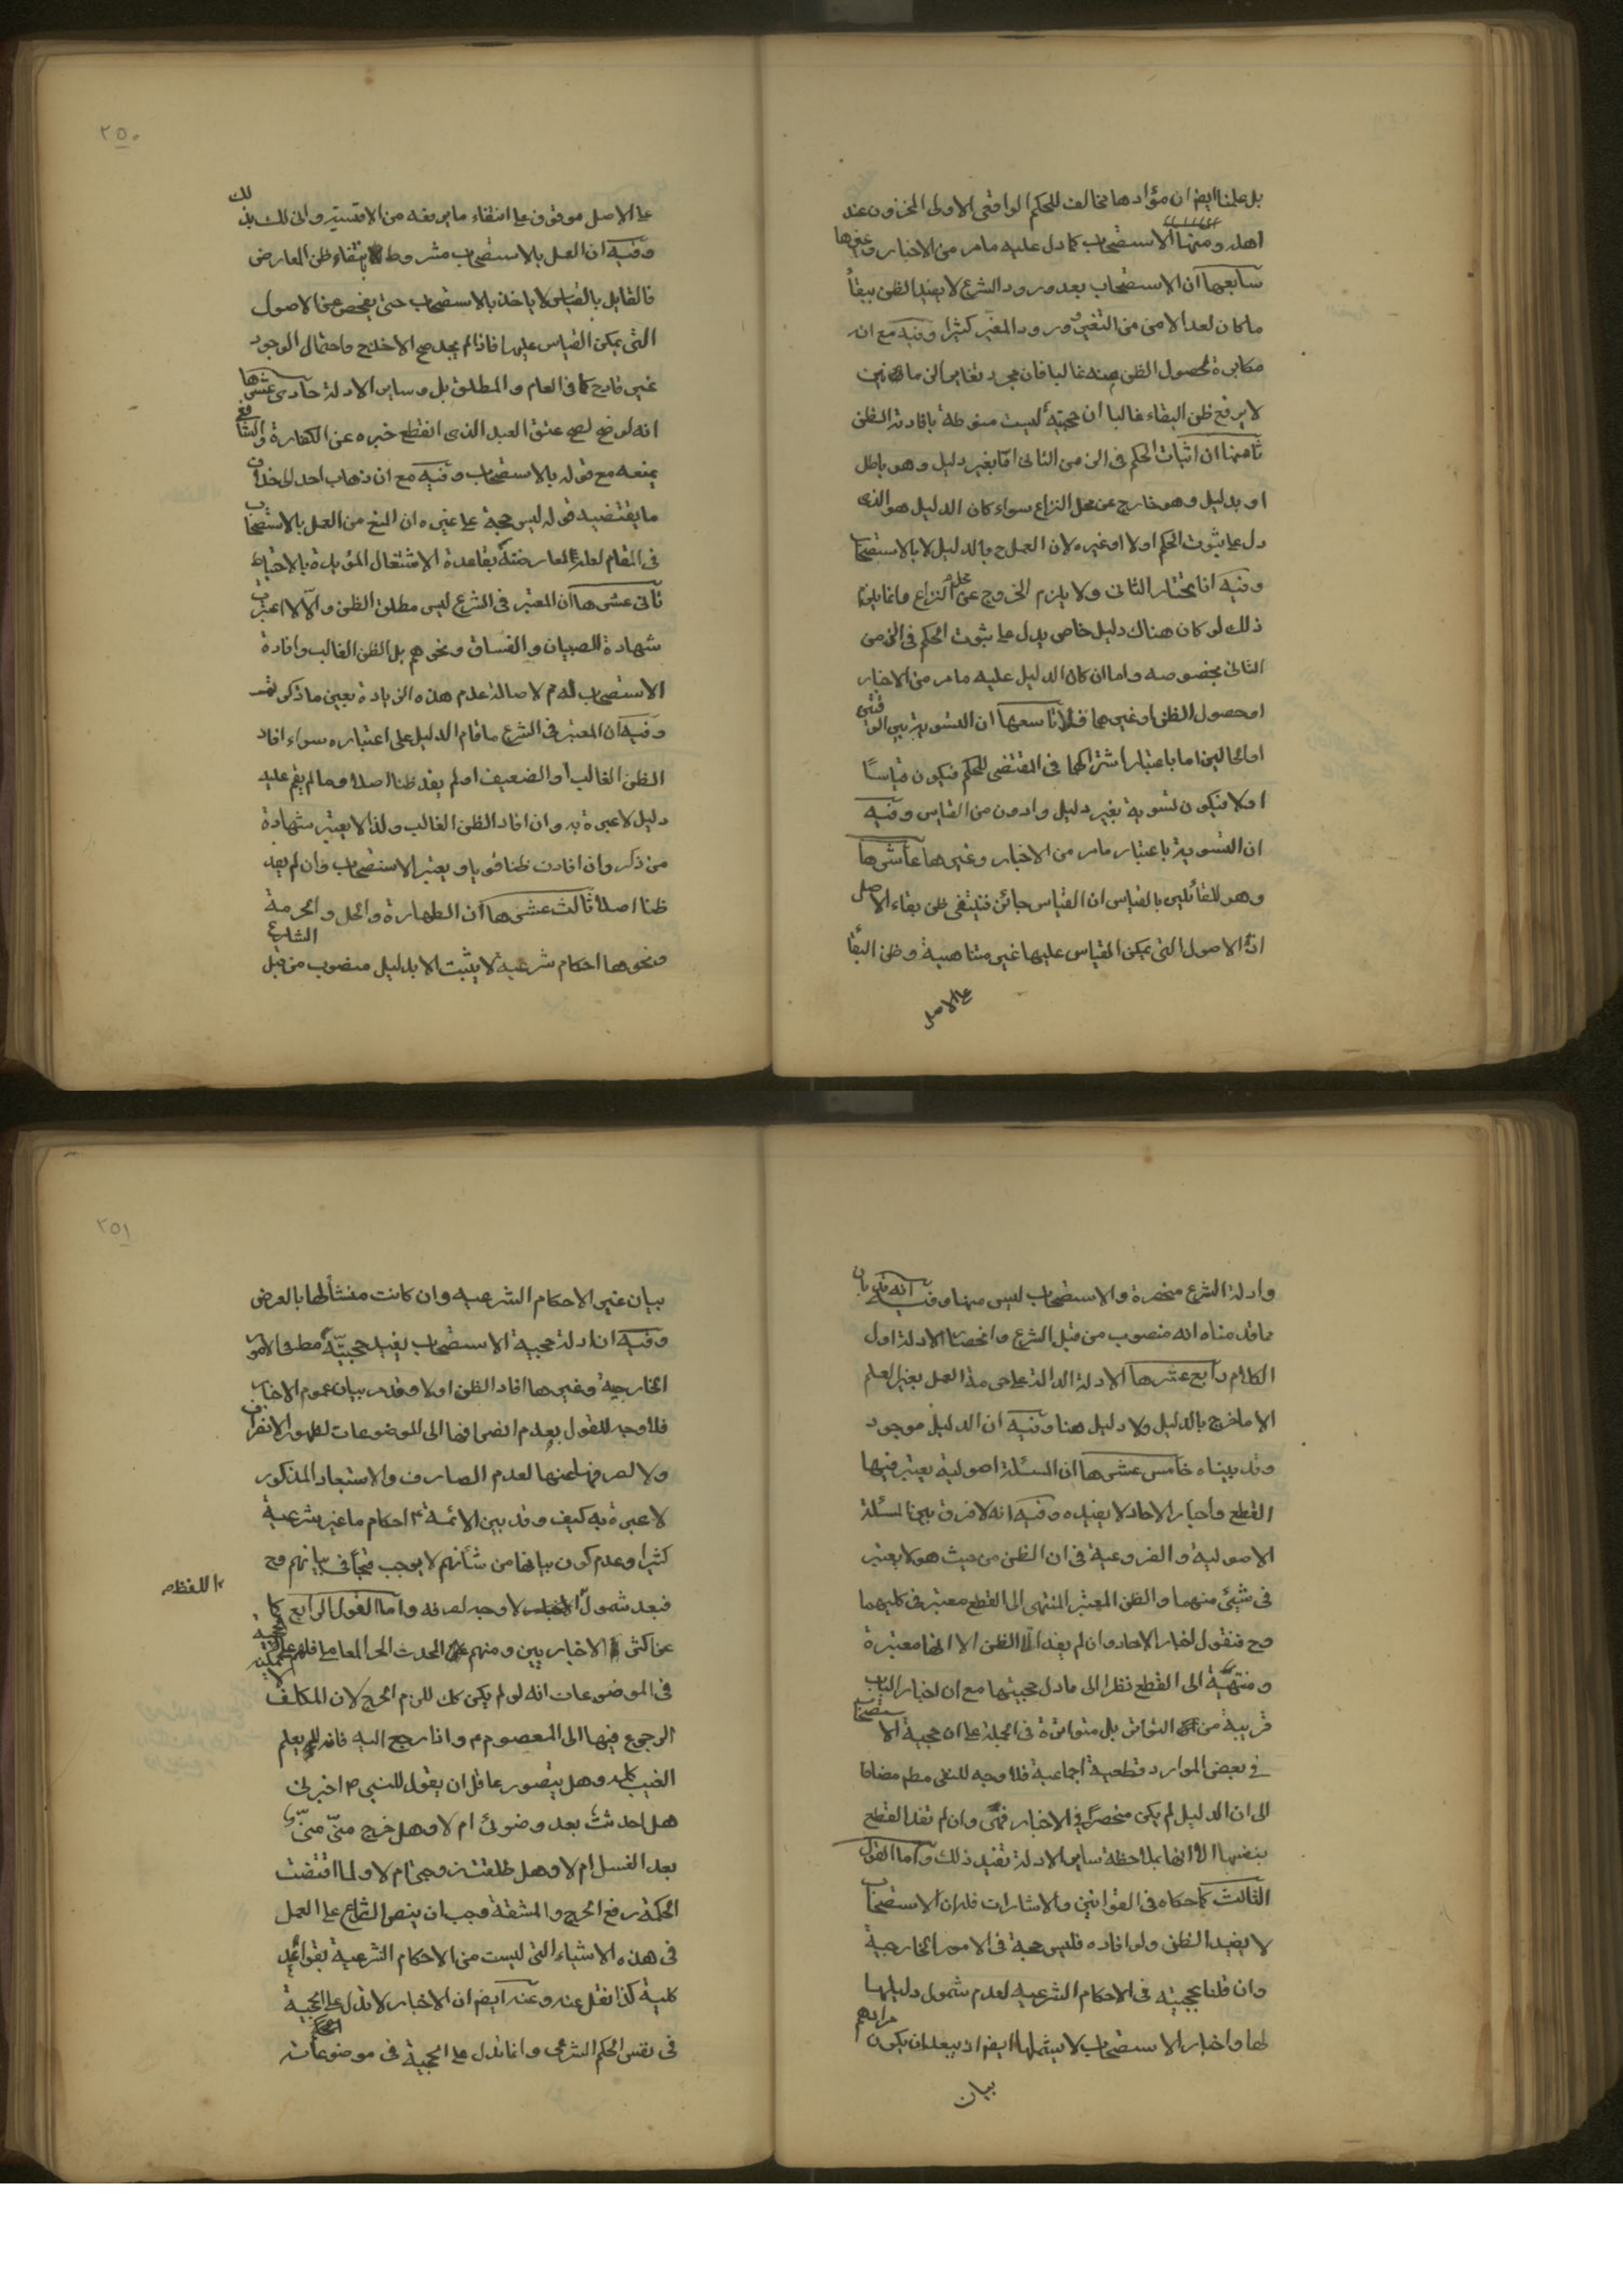 بل علمنا ايضا ان مؤداها مخالف للحكم الواقعى الاولى المخزون عند
اهله ومنها الاستصحاب كما دل عليه ما مر من الاخبار وغيرها
سابعها ان الاستصحاب بعد ورود الشرع لا يفيد الظن ببقاء
ما كان لعد الامن من التغير وورود المغير كثيرا وفيه مع انه
مكابرة لحصول الظن منه غالبا فان مجرد تغاير الزمانين
لا يرفع ظن البقاء غالبا ان حجيته ليست منوطة بافادة الظن
ثامنها ان اثبات الحكم فى الزمن الثانى اما بغير دليل وهو باطل
او بدليل وهو خارج عن محل النزاع سواء كان الدليل هو الذى
دل على ثبوت الحكم اولا او غيره لان العمل ح بالدليل لا بالاستصحاب
وفيه انا نختار الثانى ولا يلزم الخروج عن محل النزاع وانما يلزم
ذلك لو كان هناك دليل خاص يدل على ثبوت الحكم فى الزمن
الثانى بخصوصه واما ان كان الدليل عليه ما مر من الاخبار
او حصول الظن او غيرهما فلا تاسعها ان التسوية بين الوقتين
او الحالين اما باعتبار اشتراكهما فى المقتضى للحكم فيكون قياسًا
اولا فيكون تسوية بغير دليل وادون من القياس وفيه
ان التسوية باعتبار ما مر من الاخبار وغيرها عاشرها
وهو للقائلين بالقياس ان القياس جائز فينتفى ظن بقاء الاصل
اذ الاصول التى يمكن القياس عليها غير متناهية وظن البقاء
على الاصل
٢٥٠
على الاصل موقوف على انتفاء ما يرفعه من الاقيسة وانى لك بذلك
وفيه ان العمل بالاستصحاب مشروط بانتفاء ظن المعارض
فالقايل بالقياس لا ياخذ بالاستصحاب حتى يفحص عن الاصول
التى يمكن القياس عليها فاذا لم يجد صح الاخذ ح واحتمال الوجود
غير قادح كما فى العام والمطلق بل وساير الادلة حادى عشرها
انه لو صح لصح عتق العبد الذى انقطع خبره عن الكفارة والشافعى
يمنعه مع قوله بالاستصحاب وفيه مع ان ذهاب احد الى خلاف
ما يقتضيه قوله ليس حجة على غيره ان المنع من العمل بالاستصحاب
فى المقام لعله لمعارضته بقاعدة الاشتغال المؤيدة بالاحتياط
ثانى عشرها ان المعتبر فى الشرع ليس مطلق الظن والا لاعتبرت
شهادة الصبيان والفساق ونحوهم بل الظن الغالب وافادة
الاستصحاب له م لاصالة عدم هذه الزيادة بعين ما ذكر تمسك
وفيه ان المعتبر فى الشرع ما قام الدليل على اعتباره سواء افاد
الظن الغالب او الضعيف او لم يفد ظنا اصلا وما لم يقم عليه
دليل لا عبرة به وان افاد الظن الغالب ولذا لا يعتبر شهادة
من ذكر وان افادت ظنا قويا ويعتبر الاستصحاب وان لم يفد
ظنا اصلا ثالث عشرها ان الطهارة والحل والحرمة
ونحوها احكام شرعية لا يثبت الا بدليل منصوب من قبل الشارع
وادلة الشرع منحصرة والاستصحاب ليس منها وفيه انه قد بان
مما قدمناه انه منصوب من قبل الشرع وانحصار الادلة اول
الكلام رابع عشرها الادلة الدالة على حرمة العمل بغير العلم
الا ما خرج بالدليل ولا دليل هنا وفيه ان الدليل موجود
وقد بيناه خامس عشرها ان المسئلة اصولية يعتبر فيها
القطع واخبار الاحاد لا يفيده وفيه انه لا فرق بين المسئلة
الاصولية والفروعية فى ان الظن من حيث هو لا يعتبر
فى شيئ منهما والظن المعتبر المنتهى الى القطع معتبر فى كليهما
وح فنقول اخبار الاحاد وان لم يفد الا الظن الا انها معتبرة
ومنتهية الى القطع نظرا الى ما دل حجيتها مع ان اخبار الباب
قريبة من التواتر بل متواترة فى الجملة على ان حجية الاستصحاب
فى بعض الموارد قطعية اجماعية فلا وجه للنفى مطم مضافا
الى ان الدليل لم يكن منحصرا فى الاخبار فهى وان لم تفد القطع
بنفسها الا انها بملاحظة ساير الادلة تفيد ذلك واما القول
الثالث كما حكاه فى القوانين والاشارات فلان الاستصحاب
لا يفيد الظن ولو افاده فليس حجة فى الامور الخارجية
وان قلنا بحجيته فى الاحكام الشرعيه لعدم شمول دليلها
لها واخبار الاستصحاب لا يشملها ايضا اذ يبعد ان يكون مرادهم
بيان
٢٥١
بيان غير الاحكام الشرعيه وان كانت منشأ لها بالعرض
وفيه ان ادلة حجية الاستصحاب يفيد حجيته مط فى الامور
الخارجية وغيرها افاد الظن اولا وقد مر بيان عموم الاخبار
فلا وجه للقول بعدم انصرافها الى الموضوعات لظهور الانصراف
ولا لصرفها عنها لعدم الصارف والاستبعاد المذكور
لا عبرة به كيف وقد بين الائمة ع احكام ما غير شرعية
كثيرا وعدم كون بيانها من شأنهم لا يوجب قبحا فى بيانهم وح
فبعد شمول اللفظ لا وجه لصرفه واما القول الرابع كما
عن اكثر الاخباريين ومنهم المحدث الحر العاملى فلهم على الحجية
فى الموضوعات انه لو لم يكن كك للزم الحرج لان المكلف
الرجوع فيها الى المعصوم م واذا رجع اليه فانه لم يعلم
الغيب كله وهل يتصور عاقل ان يقول للنبى ص اخبرنى
هل احدثت بعد وضوئى ام لا وهل خرج منّى منىّ
بعد الغسل ام لا وهل طلقت زوجتى ام لا ولما اقتضت
الحكمة رفع الحرج والمشقة وجب ان ينص الشارع على العمل
فى هذه الاشياء التى ليست من الاحكام الشرعية بقواعد
كلية كذا نقل عنه وعنه ايضا ان الاخبار لا تدل على الحجية
فى نفس الحكم الشرعى وانما تدل على الحجية فى موضوعات